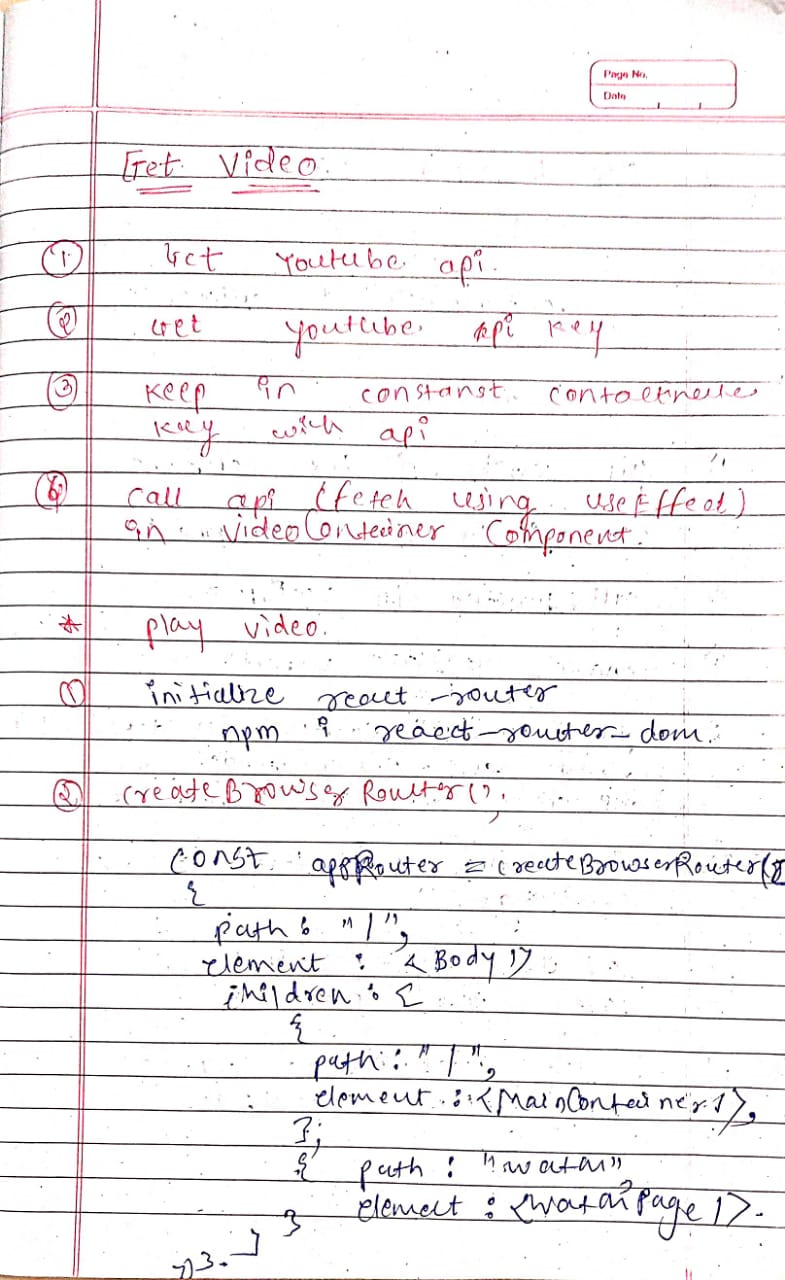 Page No.
Date
Get Video.
① Get Youtube api.
② Get youtube. Api key
③ Keep in constanst.
key with api
④ call api (fetch using useEffect)
in VideoContainer Component.
* play video.
① initialize react-router
npm i react-router-dom.
② createBrowserRouter();
const appRouter = createBrowserRouter([
{
path : "/",
element : <Body />
children : [
{
path : "/",
element : <MainContainer />,
};
{ path : "watch"
element : <watchpage />.
}
]